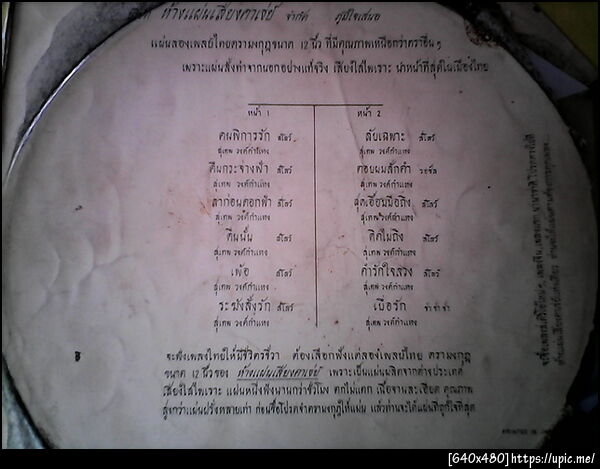 ห้างแผ่นเสียงคาเธ่ย์ จำกัด ภูมิใจเสนอ
แผ่นลองเพลย์ไทยตรามงกุฎขนาด 12 นิ้ว ที่มีคุณภาพเหนือกว่าตราอื่นๆ
เพราะแผ่นสั่งทำจากนอกอย่างแท้จริง เสียงใสไพเราะ นำหน้าที่สุดในเมืองไทย
หน้า 1
คนพิการรัก สโลว์
สุเทพ วงศ์กำแหง
คืนกระจ่างฟ้า สโลว์
สุเทพ วงศ์กำแหง
ลาก่อนดอกฟ้า สโลว์
สุเทพ วงศ์กำแหง
คืนนั้น สโลว์
สุเทพ วงศ์กำแหง
เพ้อ สโลว์
สุเทพ วงศ์กำแหง
ระฆังสั่งรัก สโลว์
สุเทพ วงศ์กำแหง
หน้า 2
ลับเฉพาะ สโลว์
สุเทพ วงศ์กำแหง
ดอยผนลักคำ
สุเทพ วงศ์กำแหง
สุดเอื้อมมือถึง สโลว์
สุเทพ วงศ์กำแหง
คิดไม่ถึง สโลว์
สุเทพ วงศ์กำแหง
คำรักใจลวง สโลว์
สุเทพ วงศ์กำแหง
เบื่อรัก ช่า ช่า ช่า
สุเทพ วงศ์กำแหง
จะฟังเพลงไทยให้มีชีวิตรชีวา ต้องเลือกฟังแต่ลองเพลย์ไทย ตรามงกุฎ
ขนาด 12 นิ้ว ของ ห้างแผ่นเสียงคาเธ่ย์ เพราะเป็นแผ่นผลิตจากต่างประเทศ
เสียงใสไพเราะ แผ่นหนึ่งฟังนานกว่าชั่วโมง ตกไม่แตก เนื้องานละเอียด คุณภาพ
สูงกว่าแผ่นฝรั่งหลายเท่า ก่อนซื้อโปรดจำตรามงกุฎให้แม่น แล้วท่านจะได้แผ่นที่ถูกใจที่สุด
[640x480] https://upic.me/